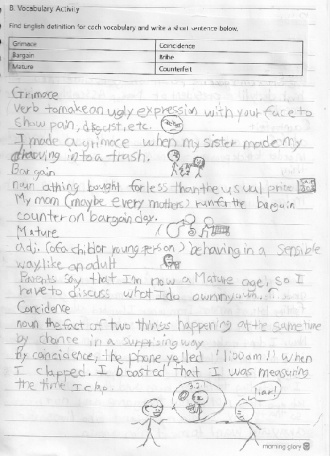 B. Vocabulary Activity
Find English definition for each vocabulary and write a short sentence below.
Grimace Coincidence
Bargain Bribe
Mature Counterfeit
Grimace
verb to make an ugly expression with your face to
show pain, disgust, etc.
I made a grimace when my sister made my
into a trash.
Bargain
noun a thing bought for less than the usual price
My mom (maybe every mothers) run for the bargain
counter on bargain day.
Mature
adj. (of a child or young person) behaving in a sensible
way, like an adult
Parents say that I'm now a Mature age, so I
have to discuss what I do own my
Concidence
noun the fact of two things happening at the same time
by chance in a surprising way
By concidence, the phone yelled "11:00 am!" when
I clapped. I boasted that I was measuring
the time I clap.
liar!
morning glory